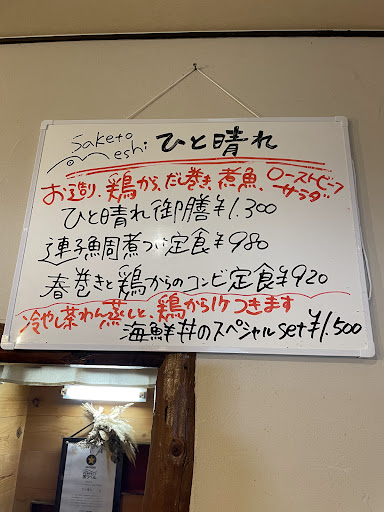 Saketo
meshi ひと晴れ
お造り、鶏から、だし巻き、煮魚、ローストビーフ
サラダ
ひと晴れ御膳¥1.300
連子魚周煮つけ定食¥980
春巻きと鶏からのコンビ定食¥920
冷やし茶わん蒸しと、鶏から1ケつきます
海鮮丼のスペシャルset¥1.500